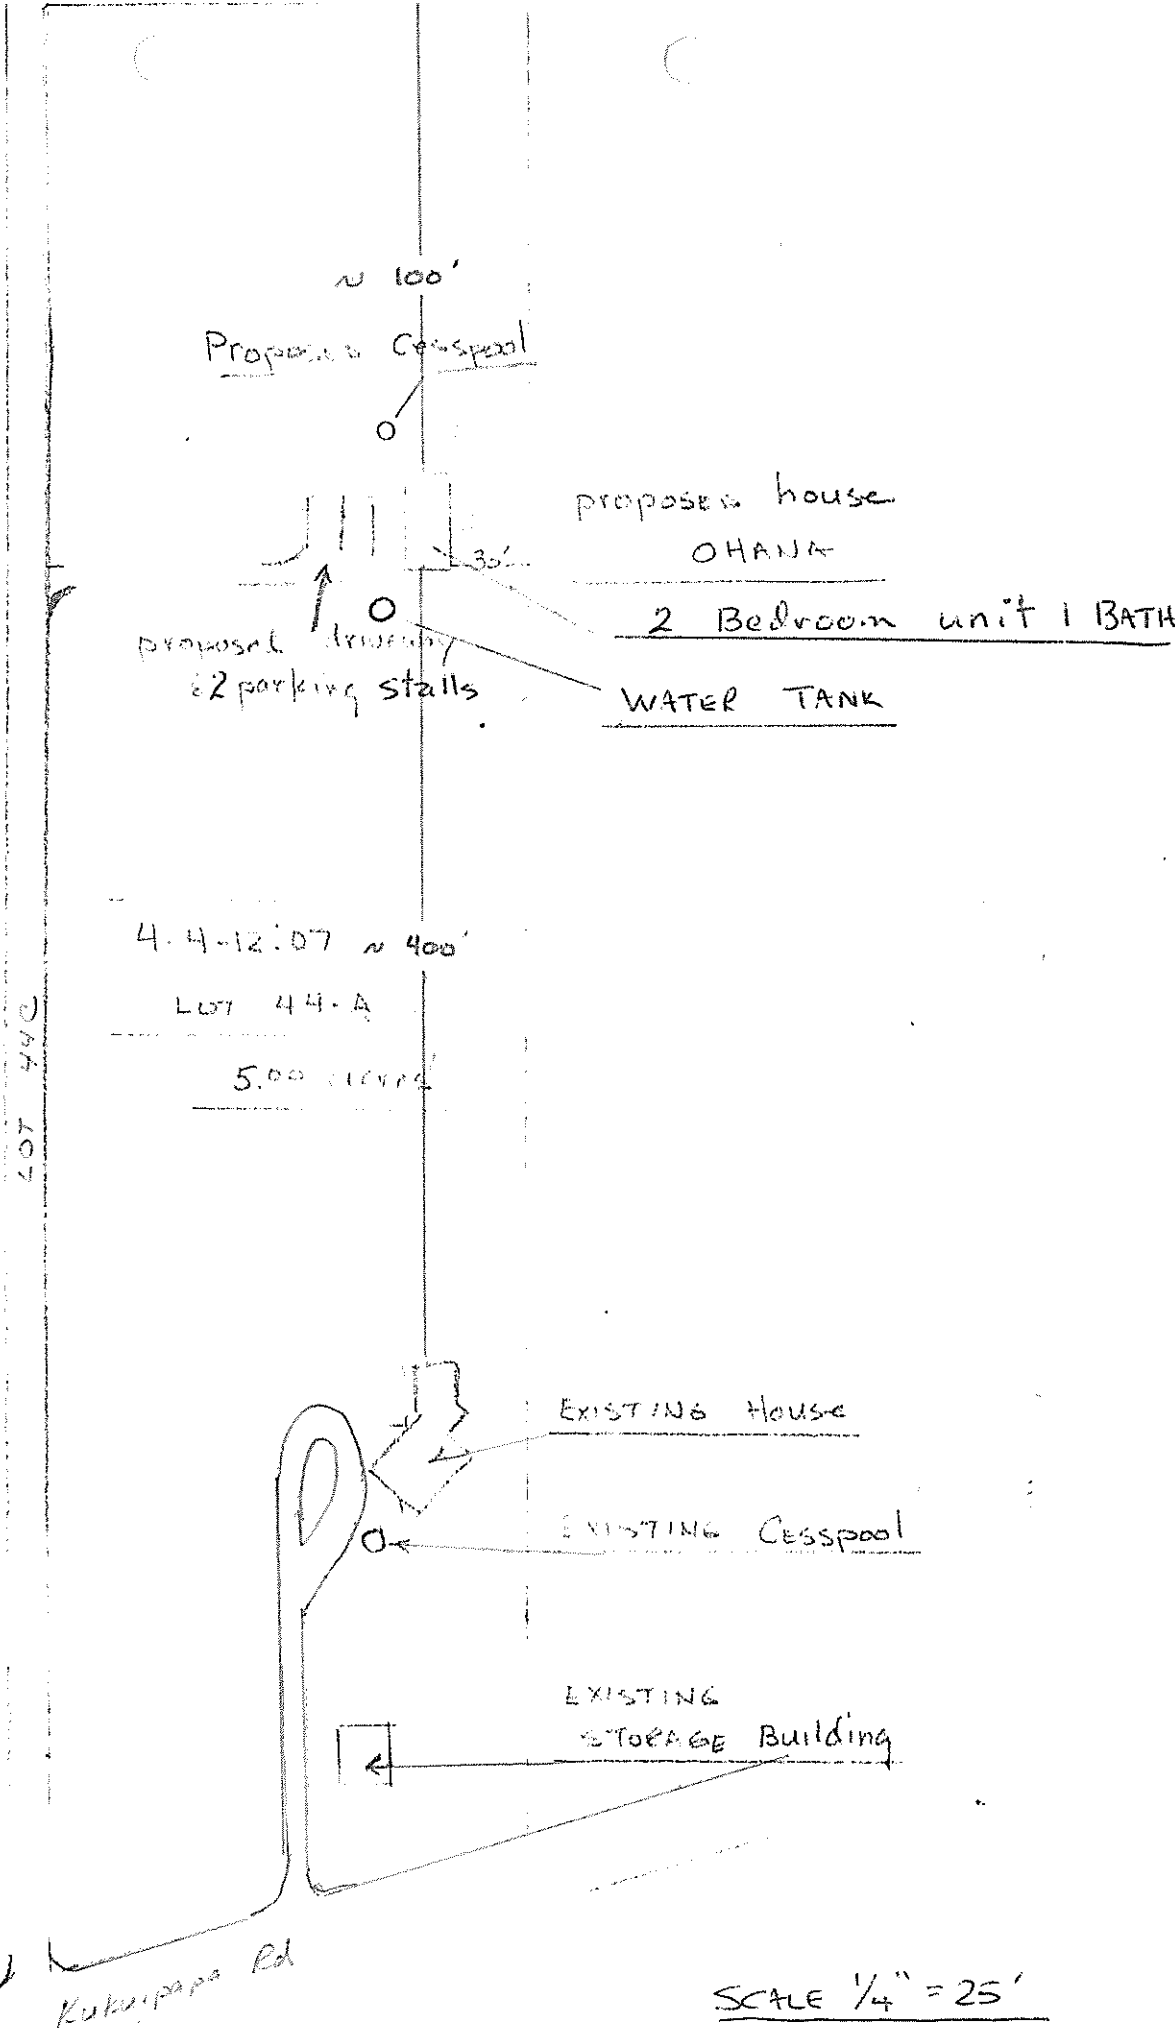 ~ 100'
Proposed Cesspool
proposed house
OHANA
30'
2 Bedroom unit 1 BATH
proposed driveway
2 parking stalls
WATER TANK
4-4-12:07 ~ 400'
LOT 44-A
5.00 acres
LOT 44C
EXISTING House
EXISTING Cesspool
EXISTING
STORAGE Building
Kukuipapa Rd
SCALE 1/4" = 25'